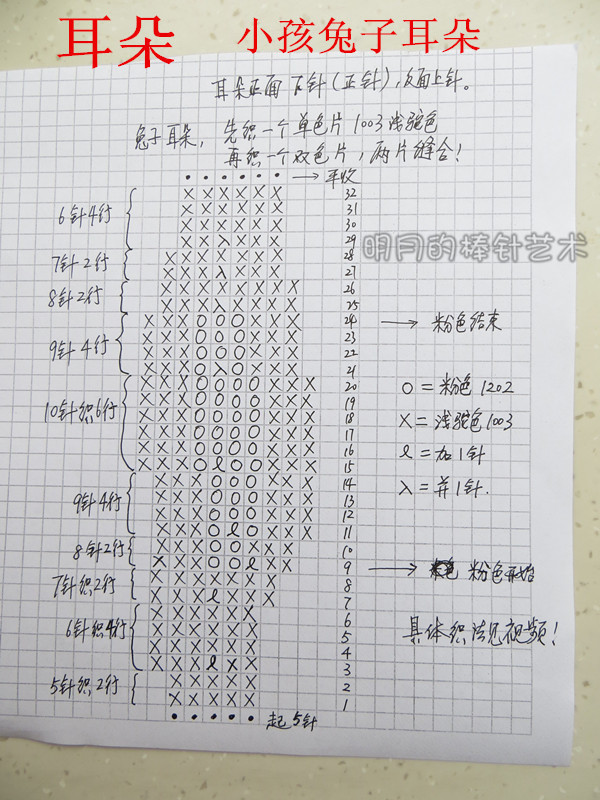 耳朵 小孩兔子耳朵
耳朵正面下针(正针),反面上针。
兔子耳朵,先织一个单色片1003浅驼色
再织一个双色片,两片缝合!
• • • • • • → 平收
X X X X X X 32
6针4行 X X X X X X 31
X X X X X X 30
X X λ X X X 29
7针2行 X X X X X X X 28
X X X λ X X X 27
8针2行 X X X X X X X X 26
X X X λ X X X X 25
X X X O O O X X X 24 → 粉色结束
9针4行 X X X O O O X X X 23
X X X O O O X X X 22
X X X O λ O X X X 21
X X X O O O O X X X 20
10针织6行 X X X O O O O X X X 19
X X X O O O O X X X 18
X X X O O O O X X X 17
X X X O O O O X X X 16
X X X O ℓ O O X X X 15
X X X O O O X X X 14
9针4行 X X X O O O X X X 13
X X X O O O X X X 12
X X X O ℓ O X X X 11
8针2行 X X X O O X X X 10
X X X O O ℓ X X 9 → 粉色开始
7针织2行 X X X X X X X 8
X X X ℓ X X X 7
X X X X X X 6
6针织4行 X X X X X X 5
X X X X X X 4
X X X ℓ X X 3
5针织2行 X X X X X 2
X X X X X 1
• • • • • 起5针
O = 粉色1202
X = 浅驼色1003
ℓ = 加1针
λ = 并1针.
具体织法见视频!
明月的棒针艺术